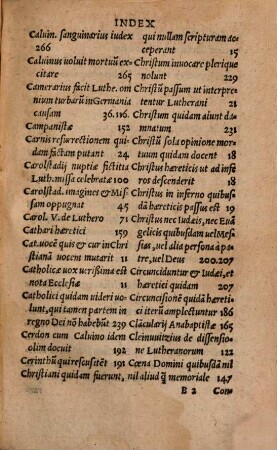 INDEX
Caluin. sanguinarius iudex
266
Caluinus uoluit mortuũ ex-
citare 265
Camerarius facit Luthe. om
nium turbarũ in Germania
causam 36.116.
Campanistæ 152
Carnis resurrectionem qui-
dam fictam putant 24
Carolstadij nuptiæ fictitia
Luth. missa celebratæ 100
Carolstad. imagines & Mis
sam oppugnat 96
Carol. V. de Luthero 71
Cathari hæretici 139
Cat. uocē quis & cur in Chri
stianā uocem mutarit 11
Catholicæ uox uerißima est
nota Ecclesiæ 21
Catholici quidam uideri uo-
lunt, qui tamen partem in
regno Dei nō habebūt 239
Cerdon cum Caluino idem
olim docuit 192
Cerinthũ qui resuscitēt 191
Christiani quidam fuerunt,
qui nullam scripturam ac-
ceperant 15
Christum inuocare plerique
nolunt 229
Christũ passum ut interpre
tentur Lutherani 21
Christum quidam aiunt da-
mnatum 231
Christũ sola opinione mor-
tuum quidam docent 18
Christus hæreticis ut ad infe
ros descenderit 18
Christus in inferno quibus-
dā hæreticis passus est 19
Christus nec Iudæis, nec Euā
gelicis quibusdam uel Mes-
sias, uel alia persona à pa-
tre, uel Deus 200.207
Circunciduntur & Iudæi, et
hæretici quidam 207
Circuncisionē quidā hæreti-
ci iterũ amplectuntur 186
Clācularij Anabaptistæ 163
Cleinuuitzius de dissensio-
ne Lutheranorum 122
Cœna Domini quibusdā nil
nil aliud q̃ memoriale 147
B 2 Com